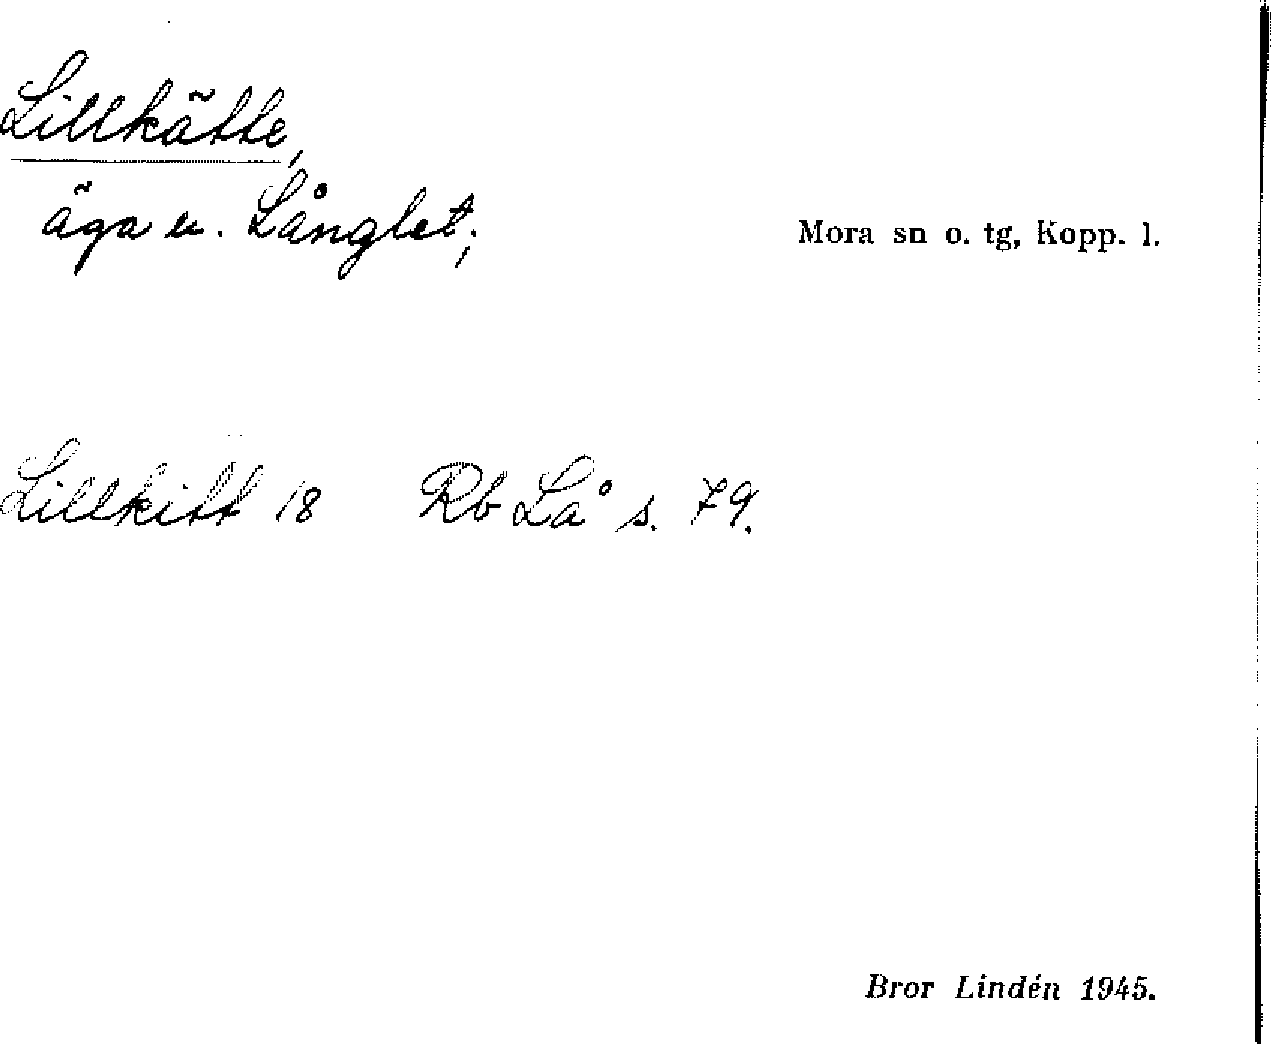 Lillkätte,
äga u. Långlet;
Mora sn o. tg, Kopp. l.
Lillkitt 18 Rb Lå s. 79.
Bror Lindén 1945.